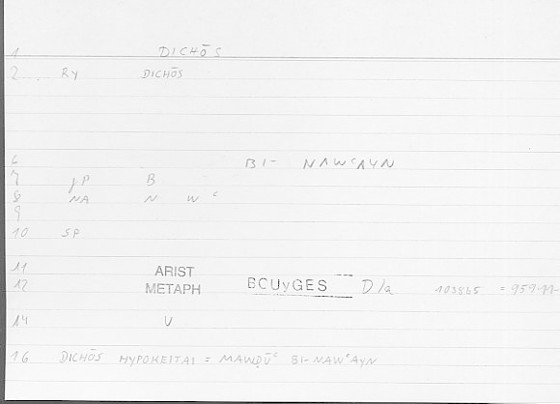 1 DICHŌS
2 RY DICHŌS
6 BI- NAWᶜAYN
7 B
8 NA N W ᶜ
9
10 SP
11 ARIST
12 METAPH BCUyGES D/a = 959-11-
14 V
16 DICHŌS HYPOKEITAI = MAWḌŪᶜ BI-NAWᶜAYN